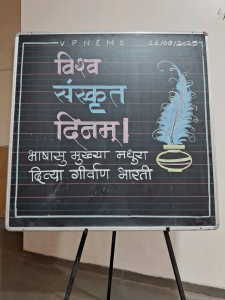 VPNEMS 11/08/2025
विश्व
संस्कृत
दिनम्।
भाषासु मुख्या मधुरा
दिव्या गीर्वाण भारती